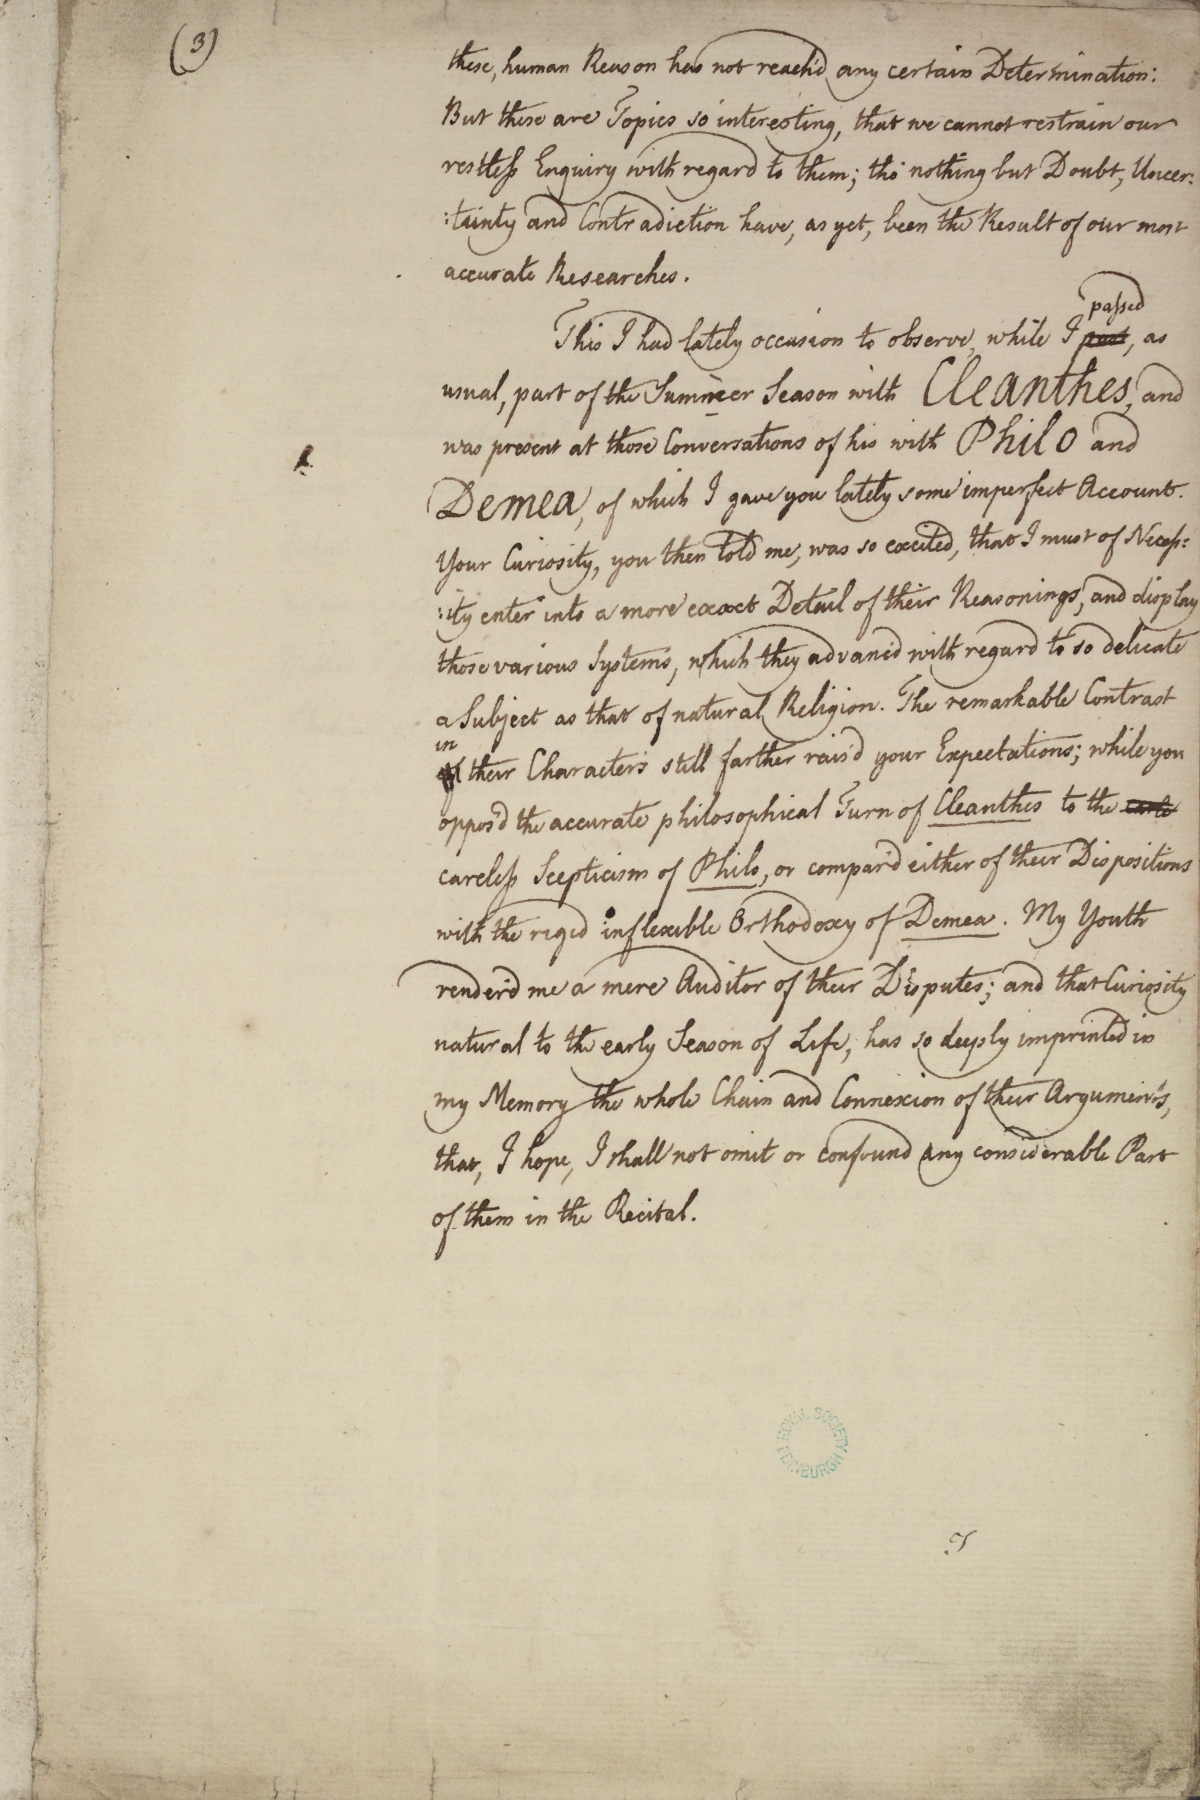 (3)
these, human Reason has not reach'd any certain Determination:
But these are Topics so interesting, that we cannot restrain our
restless Enquiry with regard to them; tho' nothing but Doubt, Uncer:
:tainty and Contradiction have, as yet, been the Result of our most
accurate Researches.
passed
This I had lately occasion to observe, while I past, as
usual, part of the Summer Season with Cleanthes, and
was present at those Conversations of his with Philo and
Demea, of which I gave you lately some imperfect Account.
Your Curiosity, you then told me, was so excited, that I must of Necess:
:ity enter into a more exact Detail of their Reasonings, and display
those various Systems, which they advanc'd with regard to so delicate
a Subject as that of natural Religion. The remarkable Contrast
in
of their Characters still farther rais'd your Expectations; while you
oppos'd the accurate philosophical Turn of Cleanthes to the
careless Scepticism of Philo, or compar'd either of their Dispositions
with the rigid inflexible Orthodoxy of Demea. My Youth
render'd me a mere Auditor of their Disputes; and that Curiosity
natural to the early Season of Life, has so deeply imprinted in
my Memory the whole Chain and Connexion of their Arguments,
that, I hope, I shall not omit or confound any considerable Part
of them in the Recital.
ROYAL SOCIETY
EDINBURGH